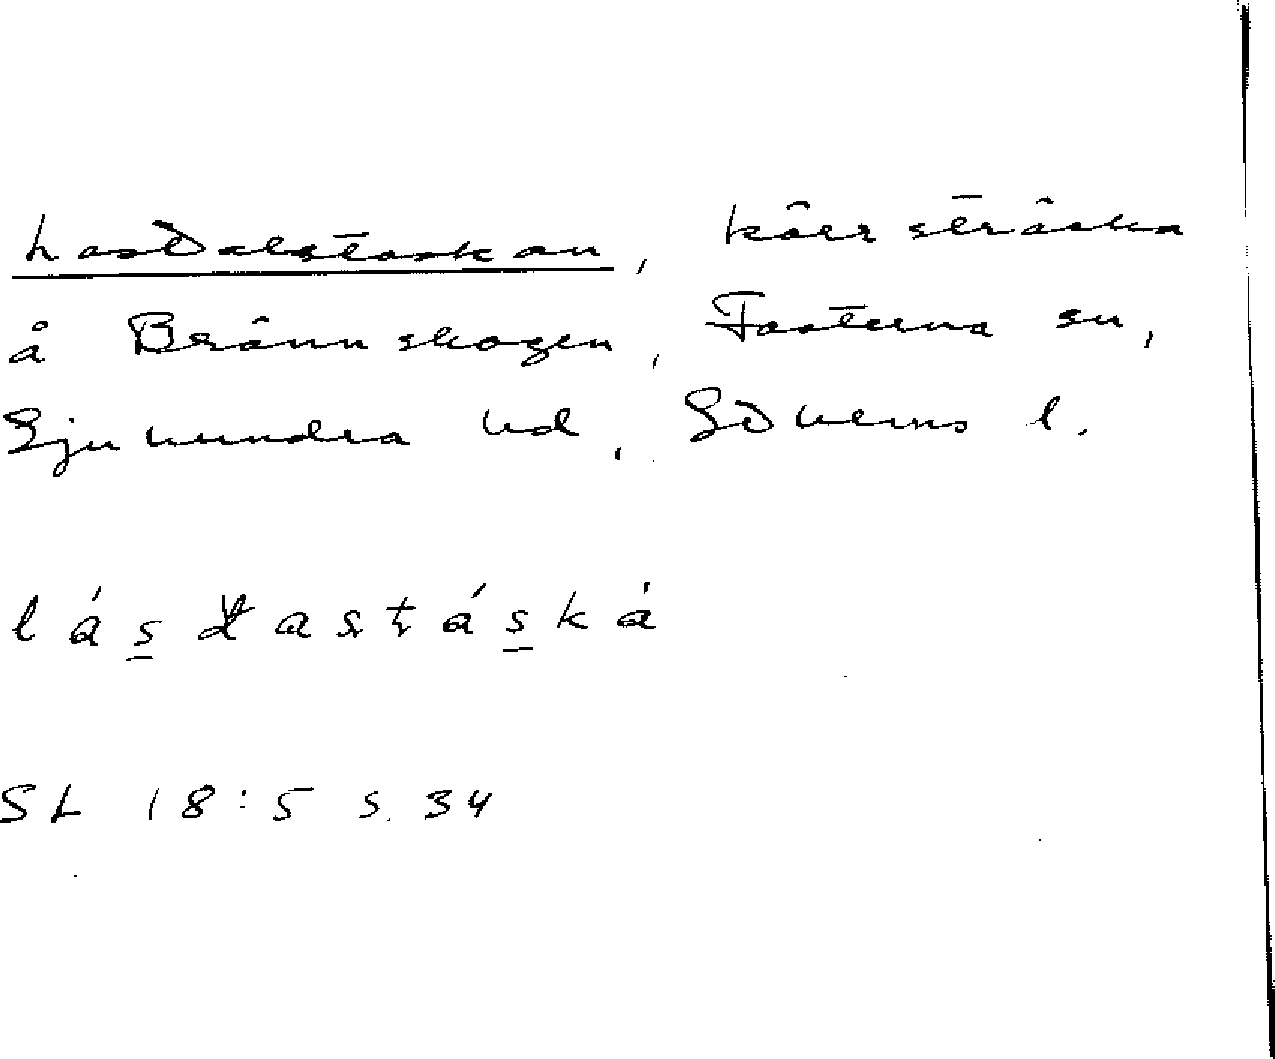 Lasdalstaskan, kärrsträcka
å Brännskogen, Fasterna sn,
Sjuhundra hd, Sthlms l.
lás̱dastás̱ká
SL 18:5 s. 34